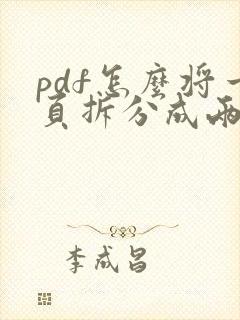 pdf怎麼将一
頁拆分成兩
李成昌